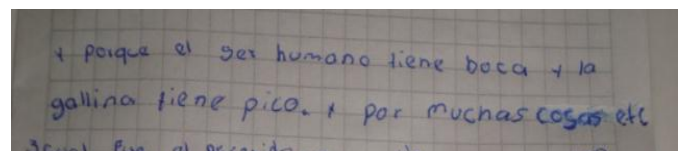 y porque el ser humano tiene boca y la
gallina tiene pico. y por muchas cosas etc